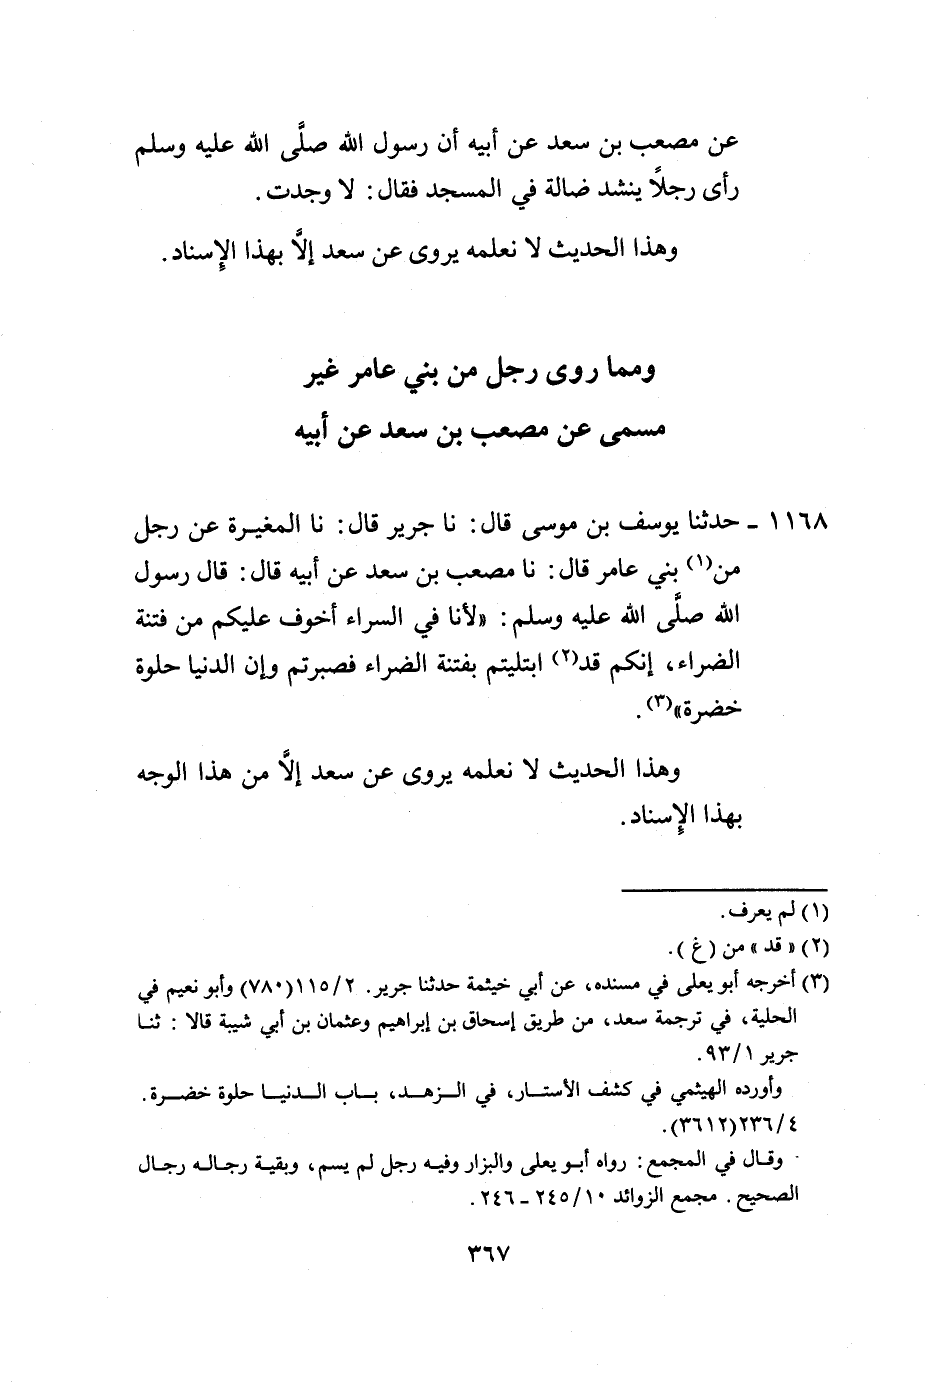 عن مصعب بن سعد عن أبيه أن رسول الله صلَّى الله عليه وسلم
رأى رجلاً ينشد ضالة في المسجد فقال: لا وجدت.
وهذا الحديث لا نعلمه يروى عن سعد إلاَّ بهذا الإِسناد.
ومما روى رجل من بني عامر غير
مسمى عن مصعب بن سعد عن أبيه
١١٦٨ ـ حدثنا يوسف بن موسى قال: نا جرير قال: نا المغيرة عن رجل
من(١) بني عامر قال: نا مصعب بن سعد عن أبيه قال: قال رسول
الله صلَّى الله عليه وسلم: «لأنا في السراء أخوف عليكم من فتنة
الضراء، إنكم قد(٢) ابتليتم بفتنة الضراء فصبرتم وإن الدنيا حلوة
خضرة»(٣).
وهذا الحديث لا نعلمه يروى عن سعد إلاَّ من هذا الوجه
بهذا الإِسناد.
(١) لم يعرف.
(٢) «قد» من (غ).
(٣) أخرجه أبو يعلى في مسنده، عن أبي خيثمة حدثنا جرير. ١١٥/٢(٧٨٠) وأبو نعيم في
الحلية، في ترجمة سعد، من طريق إسحاق بن إبراهيم وعثمان بن أبي شيبة قالا: ثنا
جرير ٩٣/١.
وأورده الهيثمي في كشف الأستار، في الزهد، باب الدنيا حلوة خضرة.
٢٣٦/٤(٣٦١٢).
وقال في المجمع: رواه أبو يعلى والبزار وفيه رجل لم يسم، وبقية رجاله رجال
الصحيح. مجمع الزوائد ٢٤٥/١٠ ـ ٢٤٦.
٣٦٧